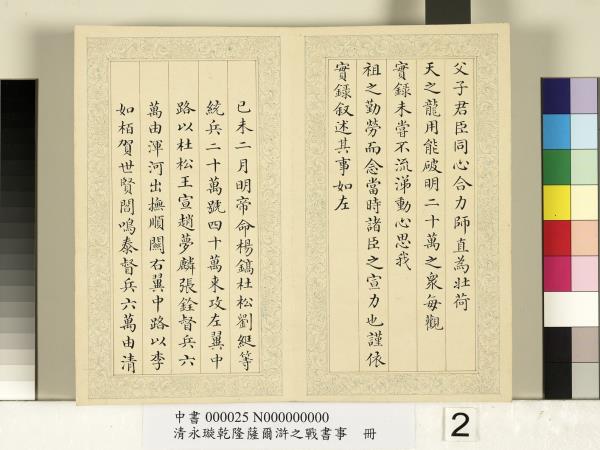 父子君臣同心合力師直為壯荷
天之龍用能破明二十萬之衆每觀
實録未嘗不流涕動心思我
祖之勤勞而念當時諸臣之宣力也謹依
實録叙述其事如左
己未二月明帝命楊鎬杜松劉綎等
統兵二十萬號四十萬來攻左翼中
路以杜松王宣趙夢麟張銓督兵六
萬由渾河出撫順關右翼中路以李
如栢賀世賢閻鳴泰督兵六萬由清
中書 000025 N000000000
清永璇乾隆薩爾滸之戰書事 冊
2